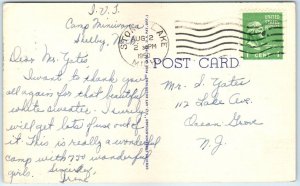 I.V.I.
Camp Miniwanca
Shelby, Mich.
Dear Mr. Yates
I want to thank you
all again for that beautiful
white sweater. I surely
will get lots of use out of
it. This is really a wonderful
camp with 750 wonderful
girls.
Sincerely,
Irene
LAKE
AUG 2
PM
POST CARD
1 CENT 1
Mr. S. Yates
112 Lake Ave.
Ocean Grove
N.J.